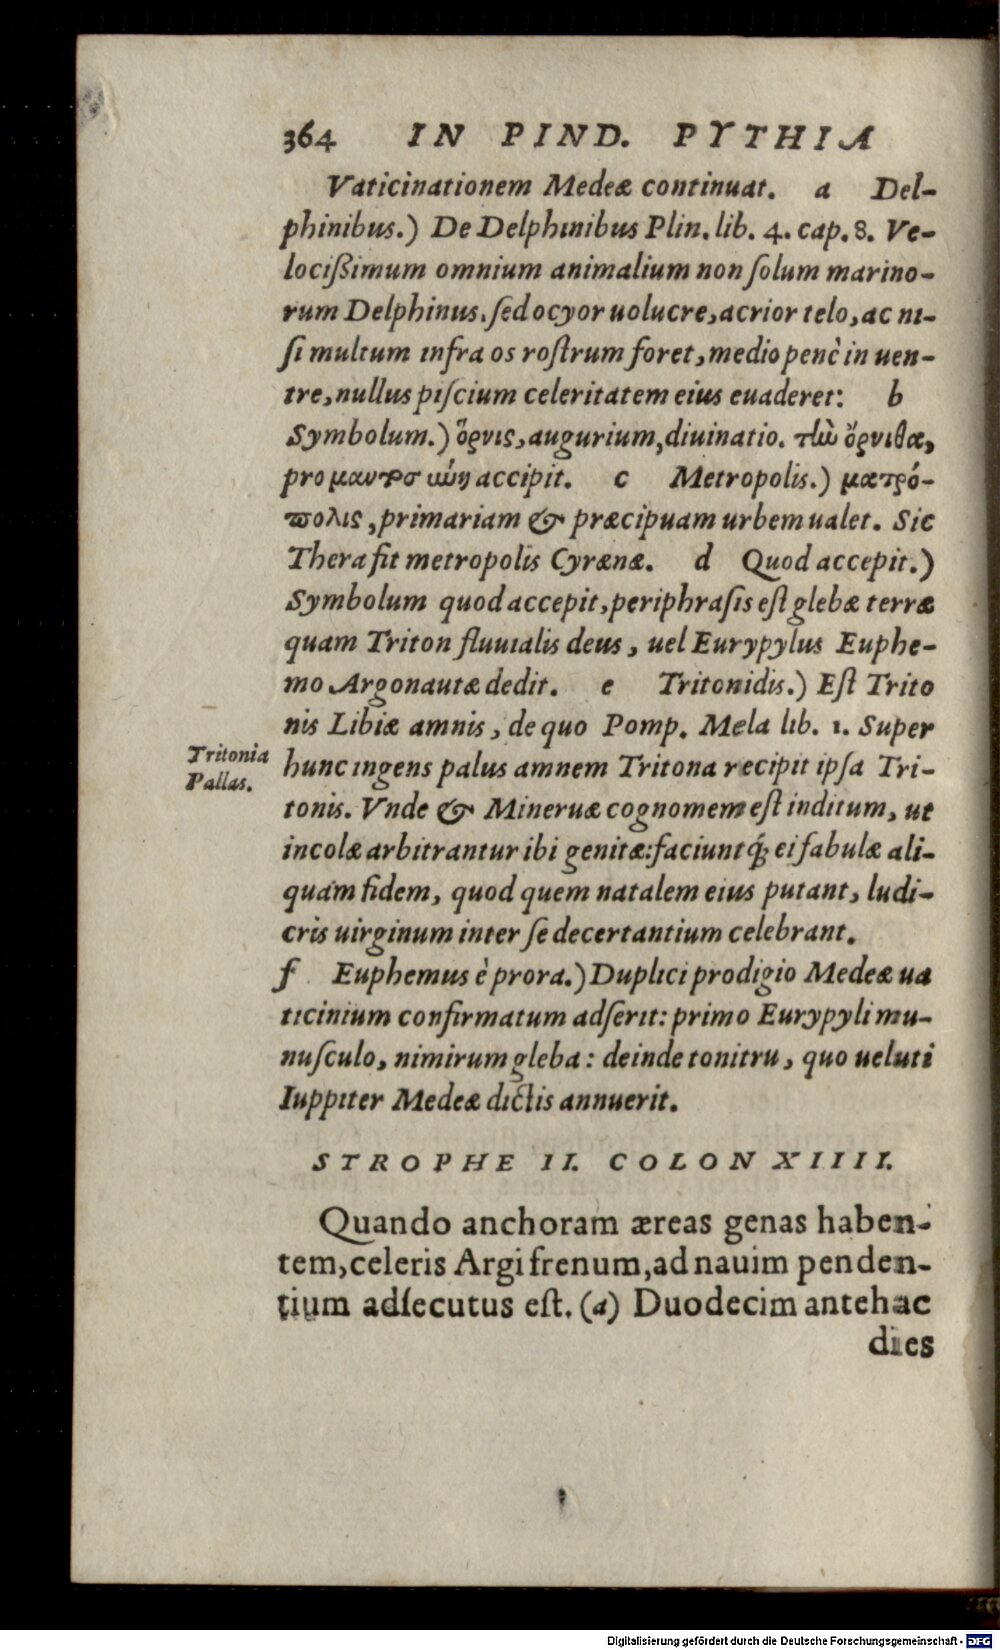 364 IN PIND. PYTHIA
Vaticinationem Medeæ continuat. a Del-
phinibus.) De Delphinibus Plin. lib. 4. cap. 8. Ve-
locißimum omnium animalium non ſolum marino-
rum Delphinus. ſed ocyor uolucre, acrior telo, ac ni-
ſi multum infra os roſtrum foret, medio penè in uen-
tre, nullus piſcium celeritatem eius euaderet: b
Symbolum.) ὄρνις, augurium, diuinatio. τὼ ὄρνιθα,
pro accipit. c Metropolis.) ματρό-
πολις, primariam & præcipuam urbem ualet. Sic
Thera fit metropolis Cyrænæ. d Quod accepit.)
Symbolum quod accepit, periphraſis eſt glebæ terræ
quam Triton fluuialis deus, uel Eurypylus Euphe-
mo Argonautæ dedit. e Tritonidis.) Eſt Trito
nis Libiæ amnis, de quo Pomp. Mela lib. 1. Super
Tritonia
Pallas.
hunc ingens palus amnem Tritona recipit ipſa Tri-
tonis. Vnde & Mineruæ cognomem eſt inditum, ut
incolæ arbitrantur ibi genitæ: faciuntq́; ei fabulæ ali-
quam fidem, quod quem natalem eius putant, ludi-
cris uirginum inter ſe decertantium celebrant.
f Euphemus è prora.) Duplici prodigio Medeæ ua
ticinium confirmatum adſerit: primo Eurypyli mu-
nuſculo, nimirum gleba: deinde tonitru, quo ueluti
Iuppiter Medeæ dictis annuerit.
STROPHE II. COLON XIIII.
Quando anchoram æreas genas haben-
tem, celeris Argi frenum, ad nauim penden-
tium adſecutus eſt. (a) Duodecim antehac
dies
Digitalisierung gefördert durch die Deutsche Forschungsgemeinschaft - DFG